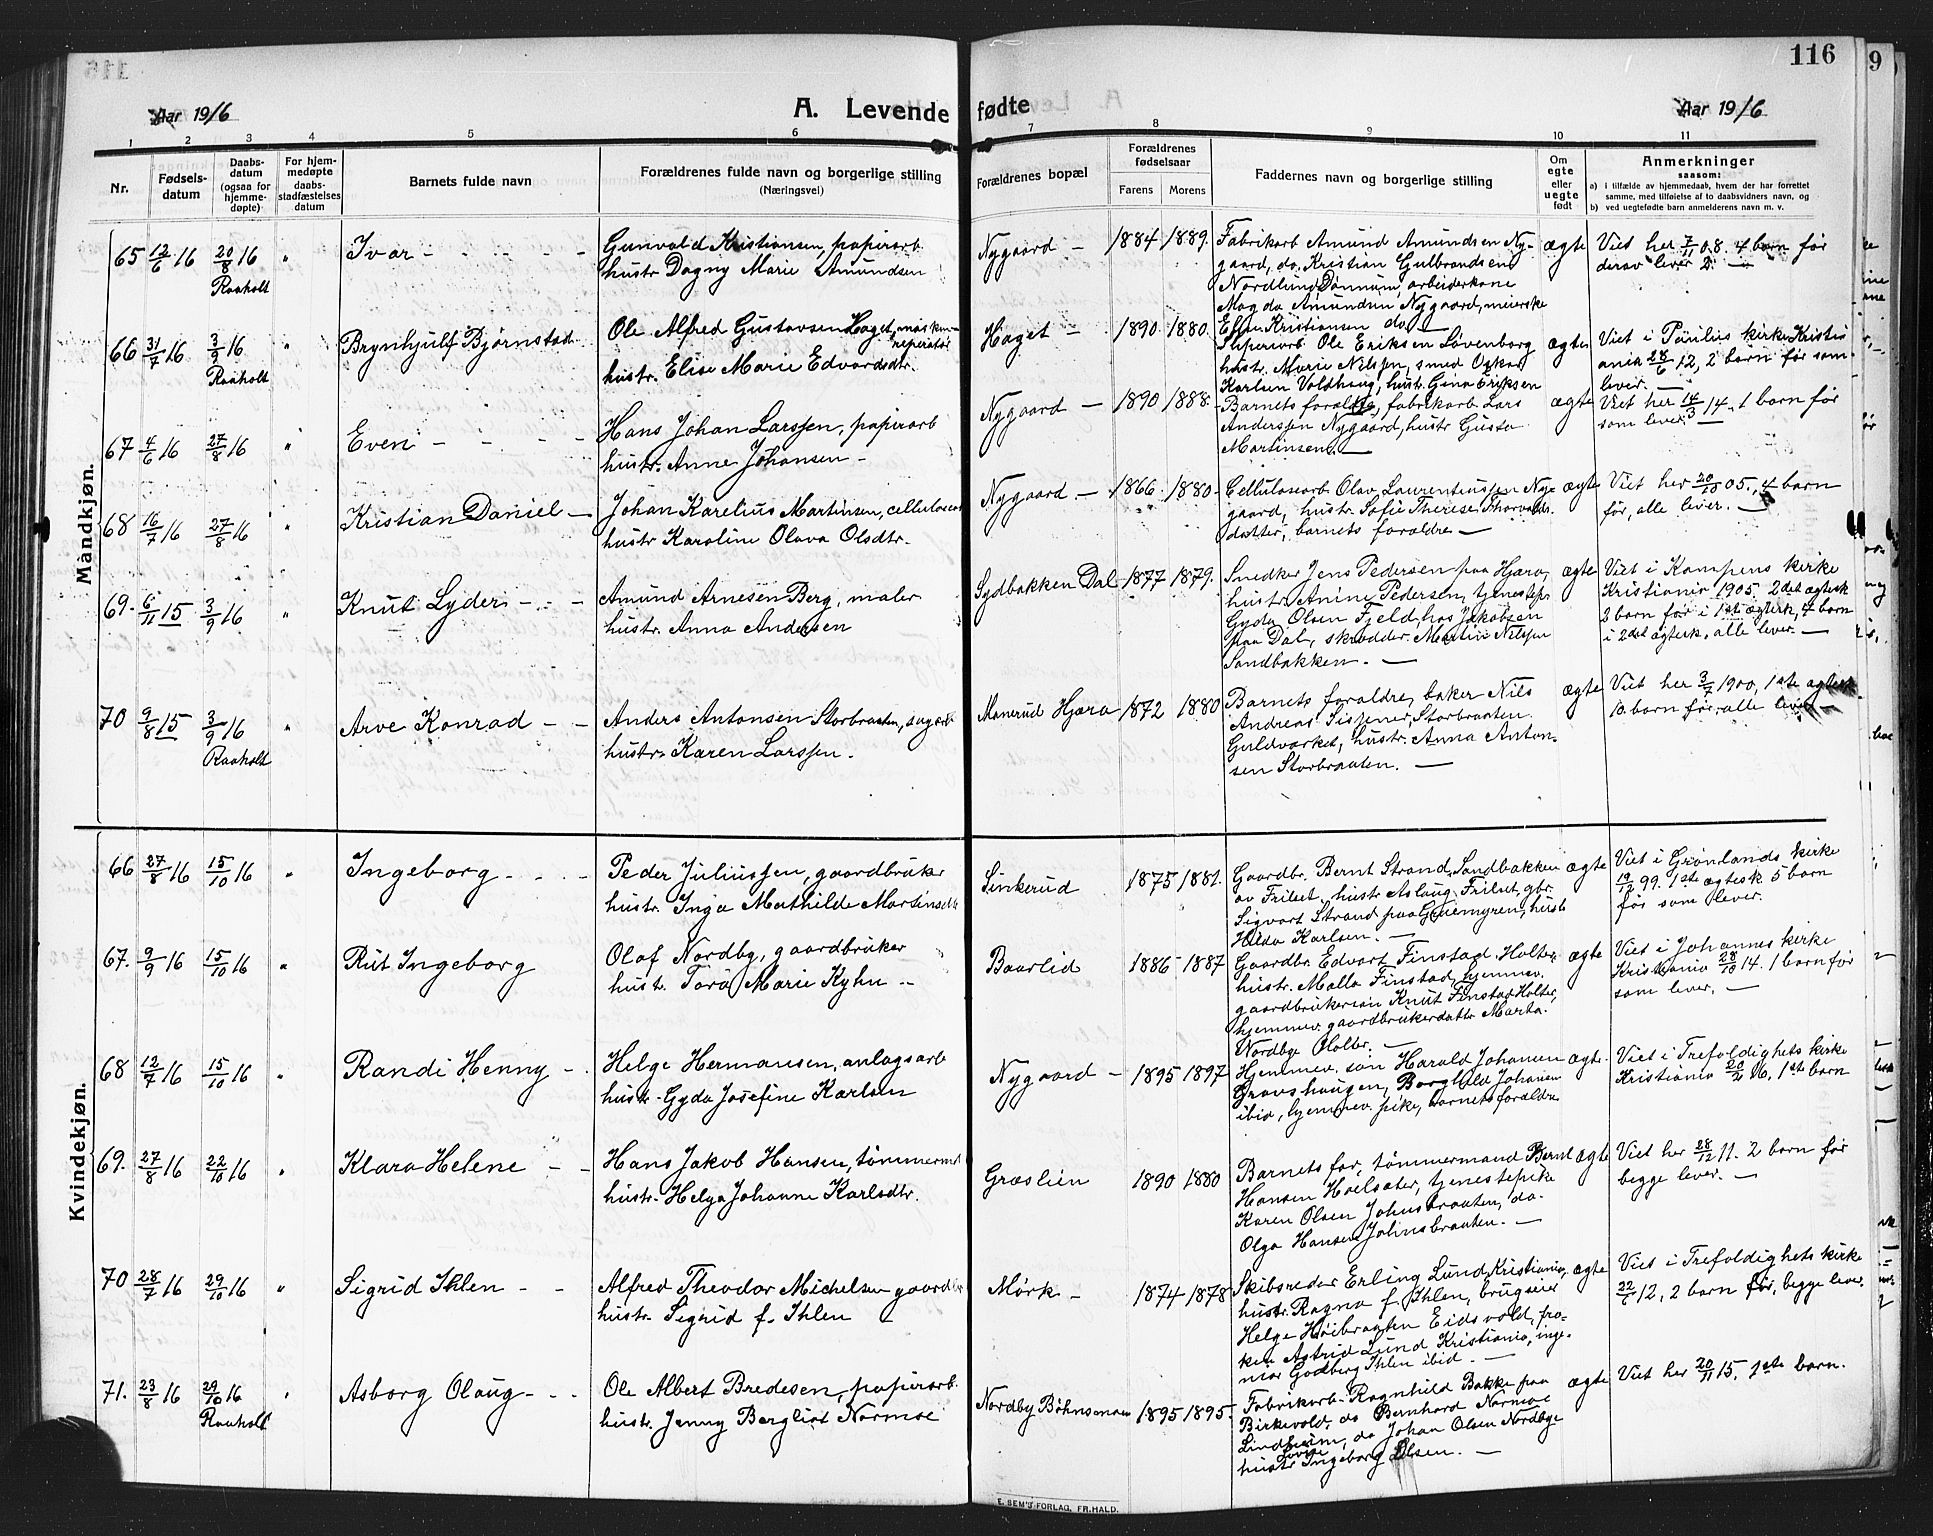 116
9
Aar 1916
A. Levende fødte
Aar 1916
1 2 3 4 5 6 7 8 9 10 11
Nr.
Fødsels-
datum
Daabs-
datum
(ogsaa for
hjemme-
døpte)
For hjem-
medøpte
daabs-
stadfæstelses
datum
Barnets fulde navn
Forældrenes fulde navn og borgerlige stilling
(Næringsvei)
Forældrenes bopæl
Forældrenes
fødselsaar
Farens Morens
Faddernes navn og borgerlige stilling
Om
egte
eller
uegte
født
Anmerkninger
saasom:
a) i tilfælde av hjemmedaab, hvem der har forrettet
samme, med tilføielse af to daabsvidners navn, og
b) ved uegtefødte barn anmelderens navn m. v.
Mandkjøn.
65 12/6 16 20/8 16 " Ivar
Raaholt
Gunvald Kristiansen, papirarb.
hustr. Dagny Marie Amundsen
Nygaard 1884 1889.
Fabrikarb Amund Amundsen Ny-
gaard, do. Kristian Gulbrandsen
Nordlund Dønnum, arbeiderkone
Magda Amundsen Nygaard, meierske
Kristiansen do
ægte
Viet her 7/11 08. 4 barn før
derav lever 2.
66 31/7 16 3/9 16 " Brynhjulf Bjørnstad
Raaholt
Ole Alfred Gustavsen Haget, maskin-
reperatør
hustr. Elise Marie Edvardsdtr.
Haget 1890 1880.
Ole Eriksen Løvenborg
hustr. Marie Nilssen, smed Oskar
Karlsen Voldhaug, hustr. Gina Eriksen
ægte
Viet i Paulus kirke Kristi
ania 28/6 12, 2 barn før som
lever.
67 4/6 16 27/8 16 " Even
Hans Johan Larssen, papirarb
hustr. Anne Johansen
Nygaard 1890 1888.
Barnets forældre, fabrikarb. Lars
Anderssen Nygaard, hustr Gusta
Martinsen.
ægte
Viet her 14/3 14. 1 barn før
som lever.
68 16/7 16 27/8 16 " Kristian Daniel
Johan Karelius Martinsen, cellulosearb
hustr Karoline Olava Olsdtr.
Nygaard 1866 1880
Cellulosearb Olav Laurentiussen Ny-
gaard, hustr. Sofie Therese Thorvalds
datter, barnets forældre
ægte
Viet her 20/10 05., 4 barn
før, alle lever.
69. 6/11 15 3/9 16 " Knut Lyder
Amund Arnesen Berg, maler
hustr. Anna Andersen
Sydbakken Dal 1877 1879.
Snedker Jens Pedersen paa Hjæra,
hustr. Anine Pedersen, tjenestepi
Gyda Olsen Fjeldhos Jakobsen
paa Dal, skrædder Martin Nilssen
Sandbakken.
ægte
Viet i Kampens kirke
Kristiania 1905. 2det ægtesk
2 barn før i 1ste ægtesk, 7 barn
i 2det ægtesk, alle lever.
70 9/8 15 3/9 16 " Arve Konrad
Raaholt
Anders Antonsen Storbraaten, sagarb
hustr. Karen Larssen.
Manerud Hjæra 1872 1880
Barnets forældre, baker Nils
Andreas Storbraaten
Guldværket, hustr. Anna Anton-
sen Storbraaten.
ægte
Viet her 3/7 1900, 1ste ægtesk.
10 barn før, alle lever
Kvindekjøn.
66 27/8 16 15/10 16 " Ingeborg
Peder Juliussen, gaardbruker
hustr. Inga Mathilde Martinsdtr
Sinkerud 1875 1881.
Gaardbr. Bernt Strand, Sandbakken
av Frilset, hustr Aslaug Frilset, gbr.
Sigvart Strand paa Greiemyren, hustr
Hilda Karlsen.
ægte
Viet i Grønlands kirke
19/12 99. 1ste ægtesk 5 barn
før som lever.
67. 9/9 16 15/10 16 " Rut Ingeborg
Olaf Nordby, gaardbruker
hust. Tora Marie Kyhn
Baarlid 1886 1887
Gaardbr. Edvart Finstad Holter
hustr. Malla Finstad, hjemmev.
gaardbrukersøn Knut Finstad Holter,
hjemmev. gaardbrukerdattr Marta
Nordbye Holter.
ægte
Viet i Johannes kirke
Kristiania 28/10 14. 1 barn før
som lever.
68 12/7 16 15/10 16 " Randi Henny
Helge Hermansen, anlagsarb
hustr. Gyda Josefine Karlsen
Nygaard 1895 1897
Hjemmev. søn Harald Johansen
Gravshaugen, Borghild Johansen
ibid, hjemmev. pike, barnets forældre
ægte.
Viet i Trefoldighets kirke
Kristiania 20/2 16, 1ste barn
69. 27/8 16 22/10 16 " Klara Helene
Hans Jakob Hansen, tømmermd
hustr. Helga Johanne Karlsdtr.
Græslien 1890 1880
Barnets far, tømmermand Bernt
Hansen Hoelsæter, tjenestepike
Karen Olsen Johnsbraaten, do.
Olga Hansen Johnsbraaten.
ægte
Viet her 28/12 11. 2 barn før
begge lever.
70 28/7 16 29/10 16 " Sigrid Ihlen
Alfred Theodor Michelsen gaardbr
hustr. Sigrid f. Ihlen
Mørk 1874 1878
Skibsreder Erling Lund Kristiania,
hustr. Ragna f. Ihlen, brugseier
Helge Høibraaten Eidsvold, frø-
ken Astrid Lund Kristiania, inge-
niør Godberg Ihlen ibid.
ægte
Viet i Trefoldighets kirke
22/6 12, 2 barn før, begge lever.
71. 23/8 16 29/10 16 " Asborg Olaug
Raaholt
Ole Albert Bredesen, papirarb.
hustr. Jenny Bergliot Normoe
Nordby Bøhnsmoen 1895 1895.
Fabrikarb. Ragnhild Bakke paa
Birkevold, do Bernhard Normoe
Lindheim, do Johan Olsen Nordbye
hustr Lovise Ingeborg Olsen.
ægte
Viet her 20/11 15, 1ste barn.
E. SEM'S FORLAG, FR.HALD.